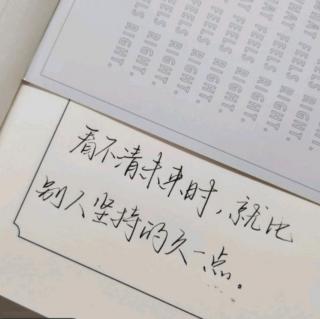 FEELS RIGHT.
FEELS RIGHT.
FEELS RIGHT.
FEELS RIGHT.
FEELS RIGHT.
FEELS RIGHT.
看不清未来时，就比
别人坚持的久一点。